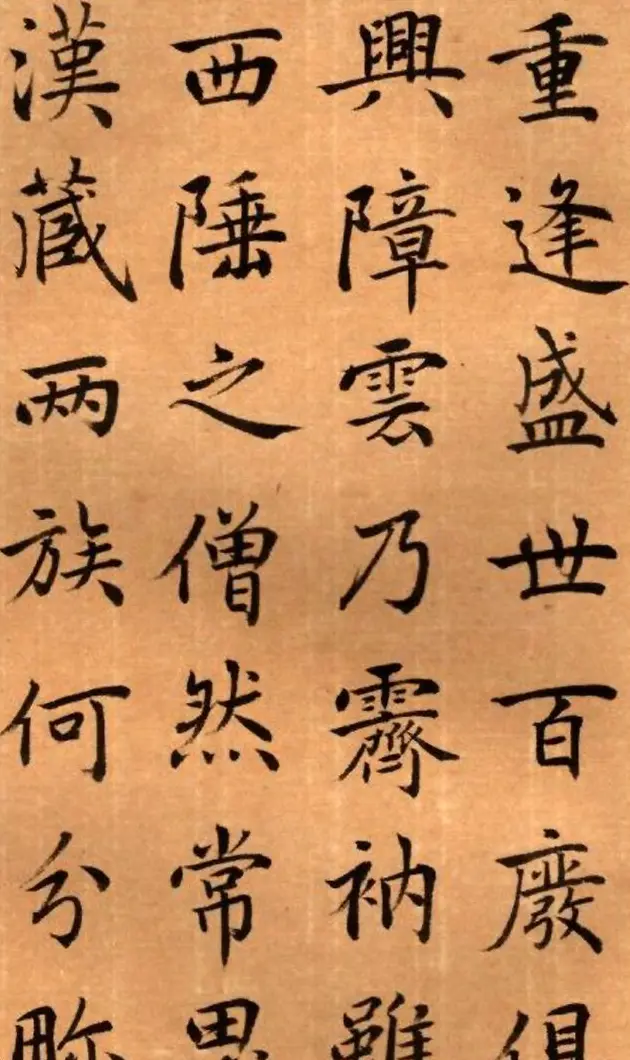 重逢盛世百廢俱
興障雲乃霽衲雖
西陲之僧然常思
漢藏两族何分畛